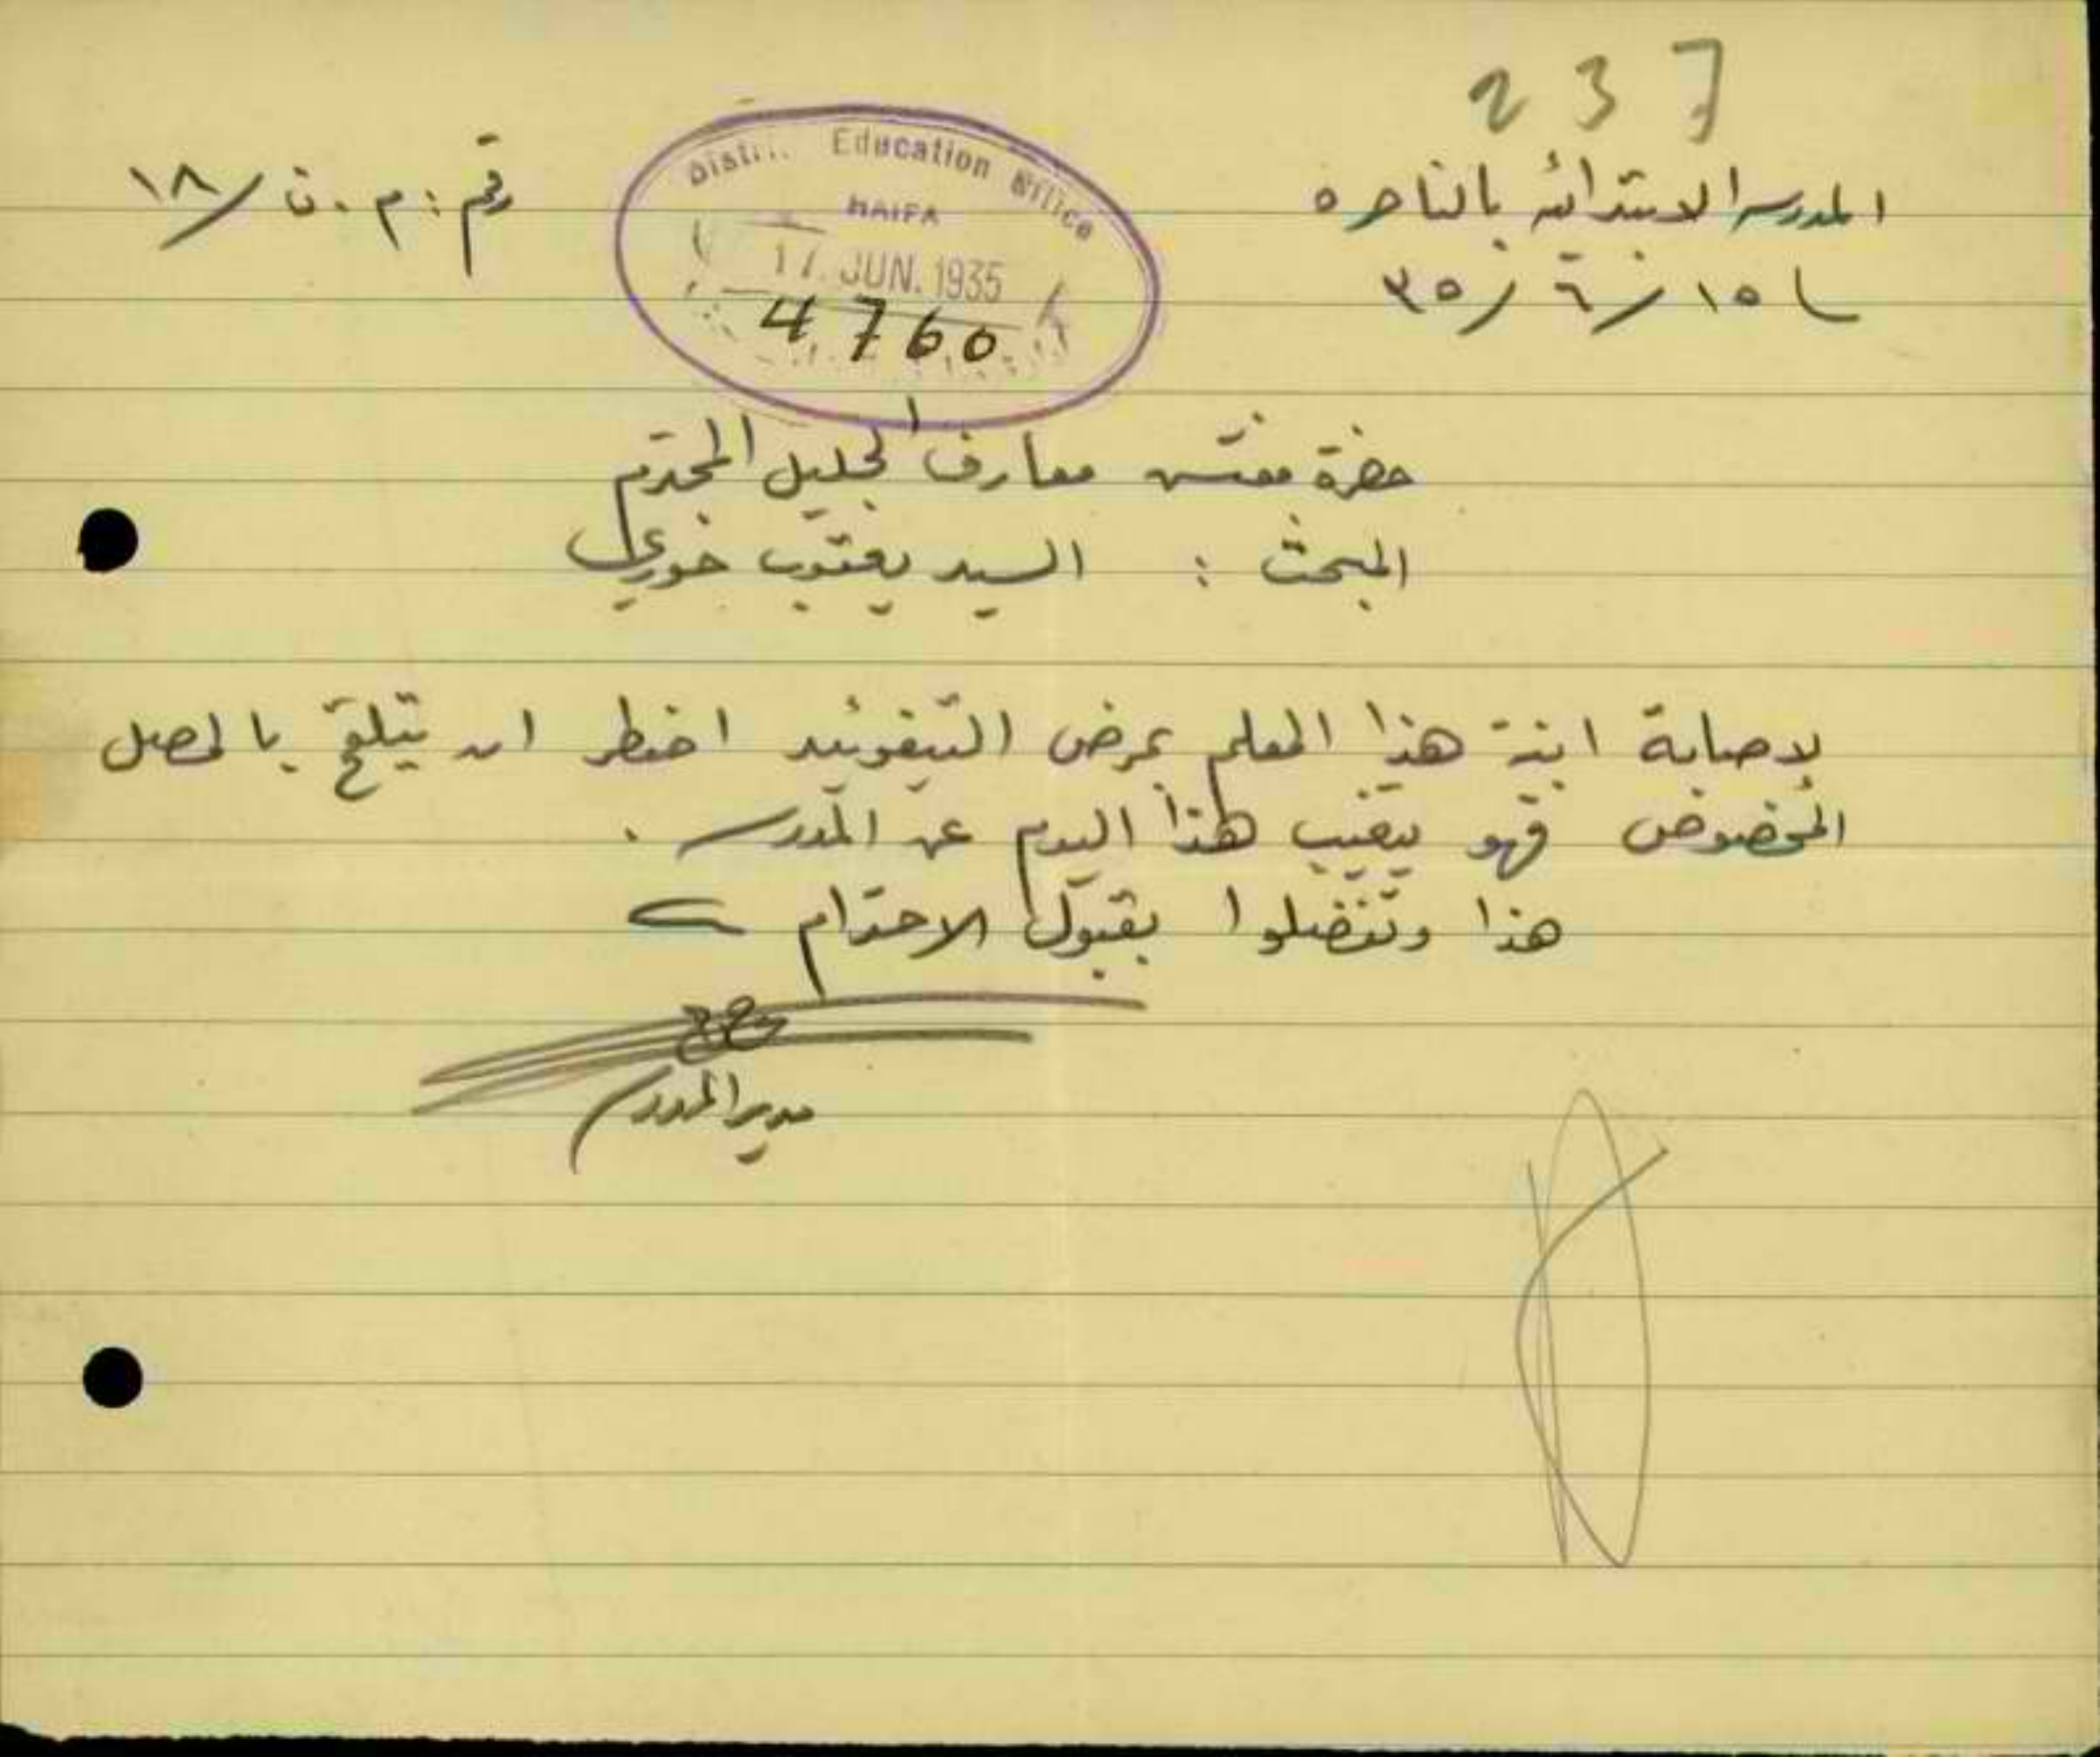 237
المدرسة الابتدائية بالناصره
١٥/٦/٣٥
رقم: م.ن/١٨
District Education Office
HAIFA
17. JUN. 1935
4760
حضرة مفتش معارف الجليل المحترم
المبحث : السيد يعقوب خوري
لاصابة ابنة هذا المعلم بمرض التيفوئيد اضطر ان يتلقح بالمصل
المخصوص فهو يتغيب هذا اليوم عن المدرسة .
هذا وتفضلوا بقبول الاحترام
مدير المدرسة